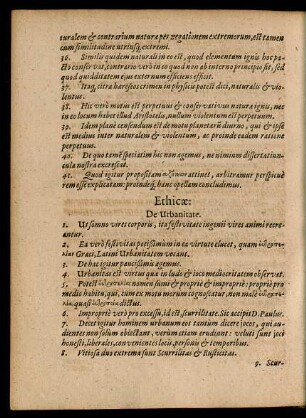 turalem & contrarium natura per negationem extremorum, est tamen
cum similitudine utriusq; extremi.
36. Similis quidem naturali in eo est, quod elementum ignis hoc pa-
cto conservat, contrario verò in eo quod non ab interno principio sit, sed
quod quidditatem ejus externum efficiens efficit.
37. Itaq; citra hæreseos crimen in physicis potest dici, naturalis & vio-
lentus.
38. Hic verò motus est perpetuus & conservativus natura ignis, nec
in eo locum habet illud Aristotelis, nullum violentum est perpetuum.
39. Idem planè censendum est de motu planetarum diurno, qui & ipse
est medius inter naturalem & violentum, ac proinde eadem ratione
perpetuus.
40. De quo tamen speciatim hic non agemus, ne nimium dissertatiun-
cula nostra excrescat.
41. Quod igitur propositam attinet, arbitramur perspicuè
rem esse explicatam: proinde hanc opellam concludimus.
Ethicæ:
De Urbanitate.
1. Ut somno vires corporis, ita festivitate ingenii vires animi recre-
antur.
2. Ea verò festivitas potissimùm in ea virtute elucet, quam
Græci, Latini Urbanitatem vocant.
3. De hac igitur paucissimis agemus.
4. Urbanitas est virtus qua in ludo & joco mediocritatem observat.
5. Potest nomen sumi & propriè & impropriè: propriè pro
medio habitu, qui, tum ex motu morum cognoscatur, non malè
quasi dictus.
6. Impropriè verò pro excessu, id est, scurrilitate. Sic accipit D. Paulus.
7. Decet igitur hominem urbanum ea tantùm dicere jocos, qui au-
dientes non solùm oblectant, verùm etiam erudiunt. Tales verò sunt joci
honesti, liberales, convenientes loco, personis & tempori.
8. Vitiosa duo extrema sunt Scurrilitas & Rusticitas.
9. Scur-